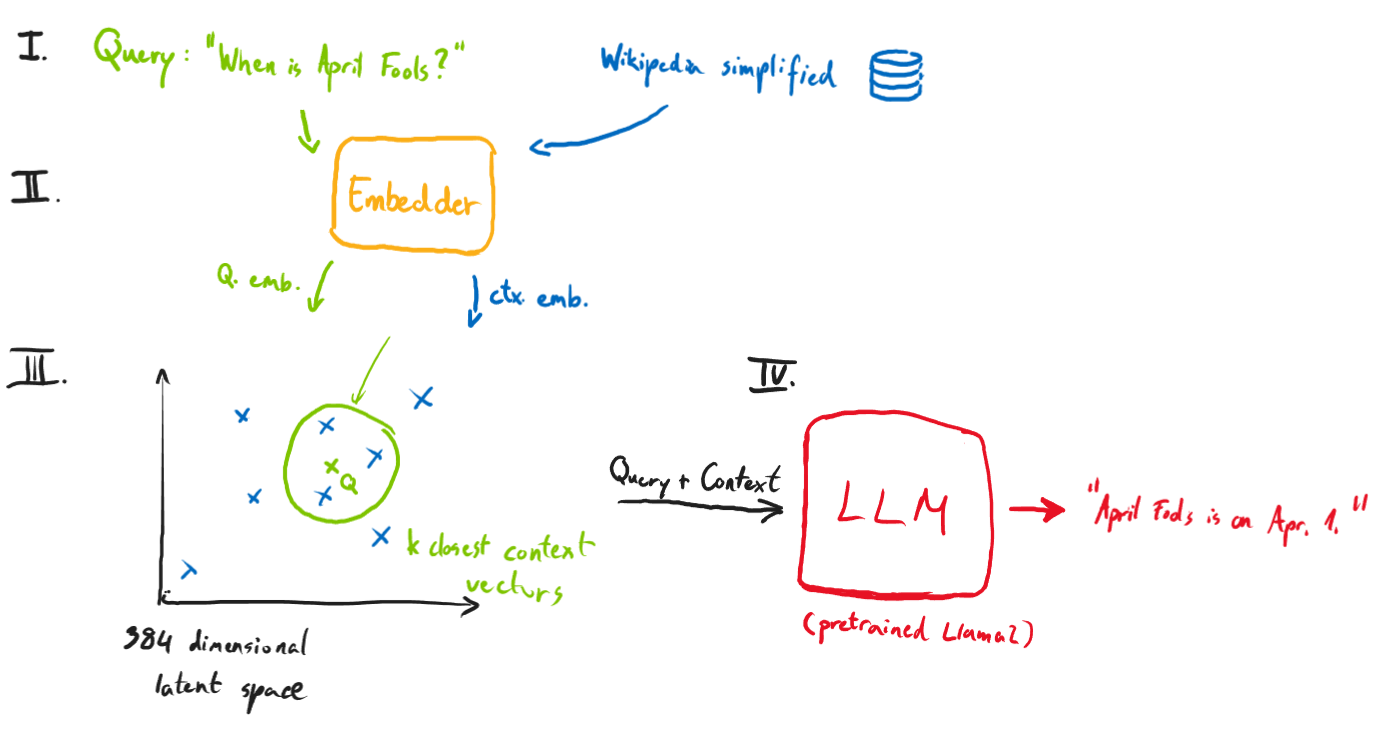 I.
Query: "When is April Fools?"
Wikipedia simplified
II.
Embedder
Q. emb.
ctx. emb.
III.
Q
k closest context
vectors
384 dimensional
latent space
IV.
Query + Context
LLM
(pretrained Llama2)
"April Fools is on Apr. 1."